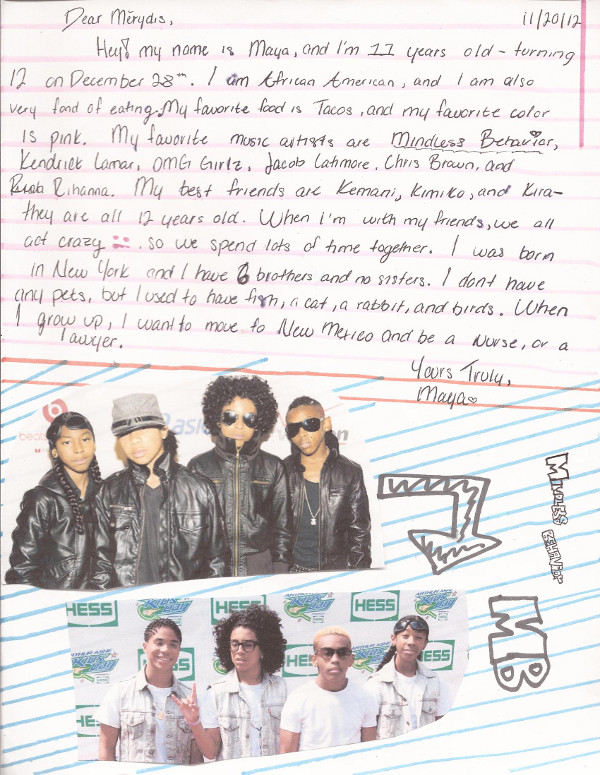 Dear Merydis,
11/20/12
Hey! my name is Maya, and I'm 11 years old - turning
12 on December 28th. I am African American, and I am also
very fond of eating. My favorite food is Tacos, and my favorite color
is pink. My favorite music artists are Mindless Behavior,
Kendrick Lamar, OMG Girlz, Jacob Latimore, Chris Brown, and
Rihanna. My best friends are Kemani, Kimiko, and Kira-
they are all 12 years old. When I'm with my friends, we all
act crazy so we spend lots of time together. I was born
in New York and I have 6 brothers and no sisters. I dont have
any pets, but I used to have fish, a cat, a rabbit, and birds. When
I grow up, I want to move to New Mexico and be a Nurse, or a
lawyer.
Yours Truly,
Maya
beats
asic
on
MINDLESS BEHAVIOR
HESS
HESS
HESS
HE
HESS
HESS
MB